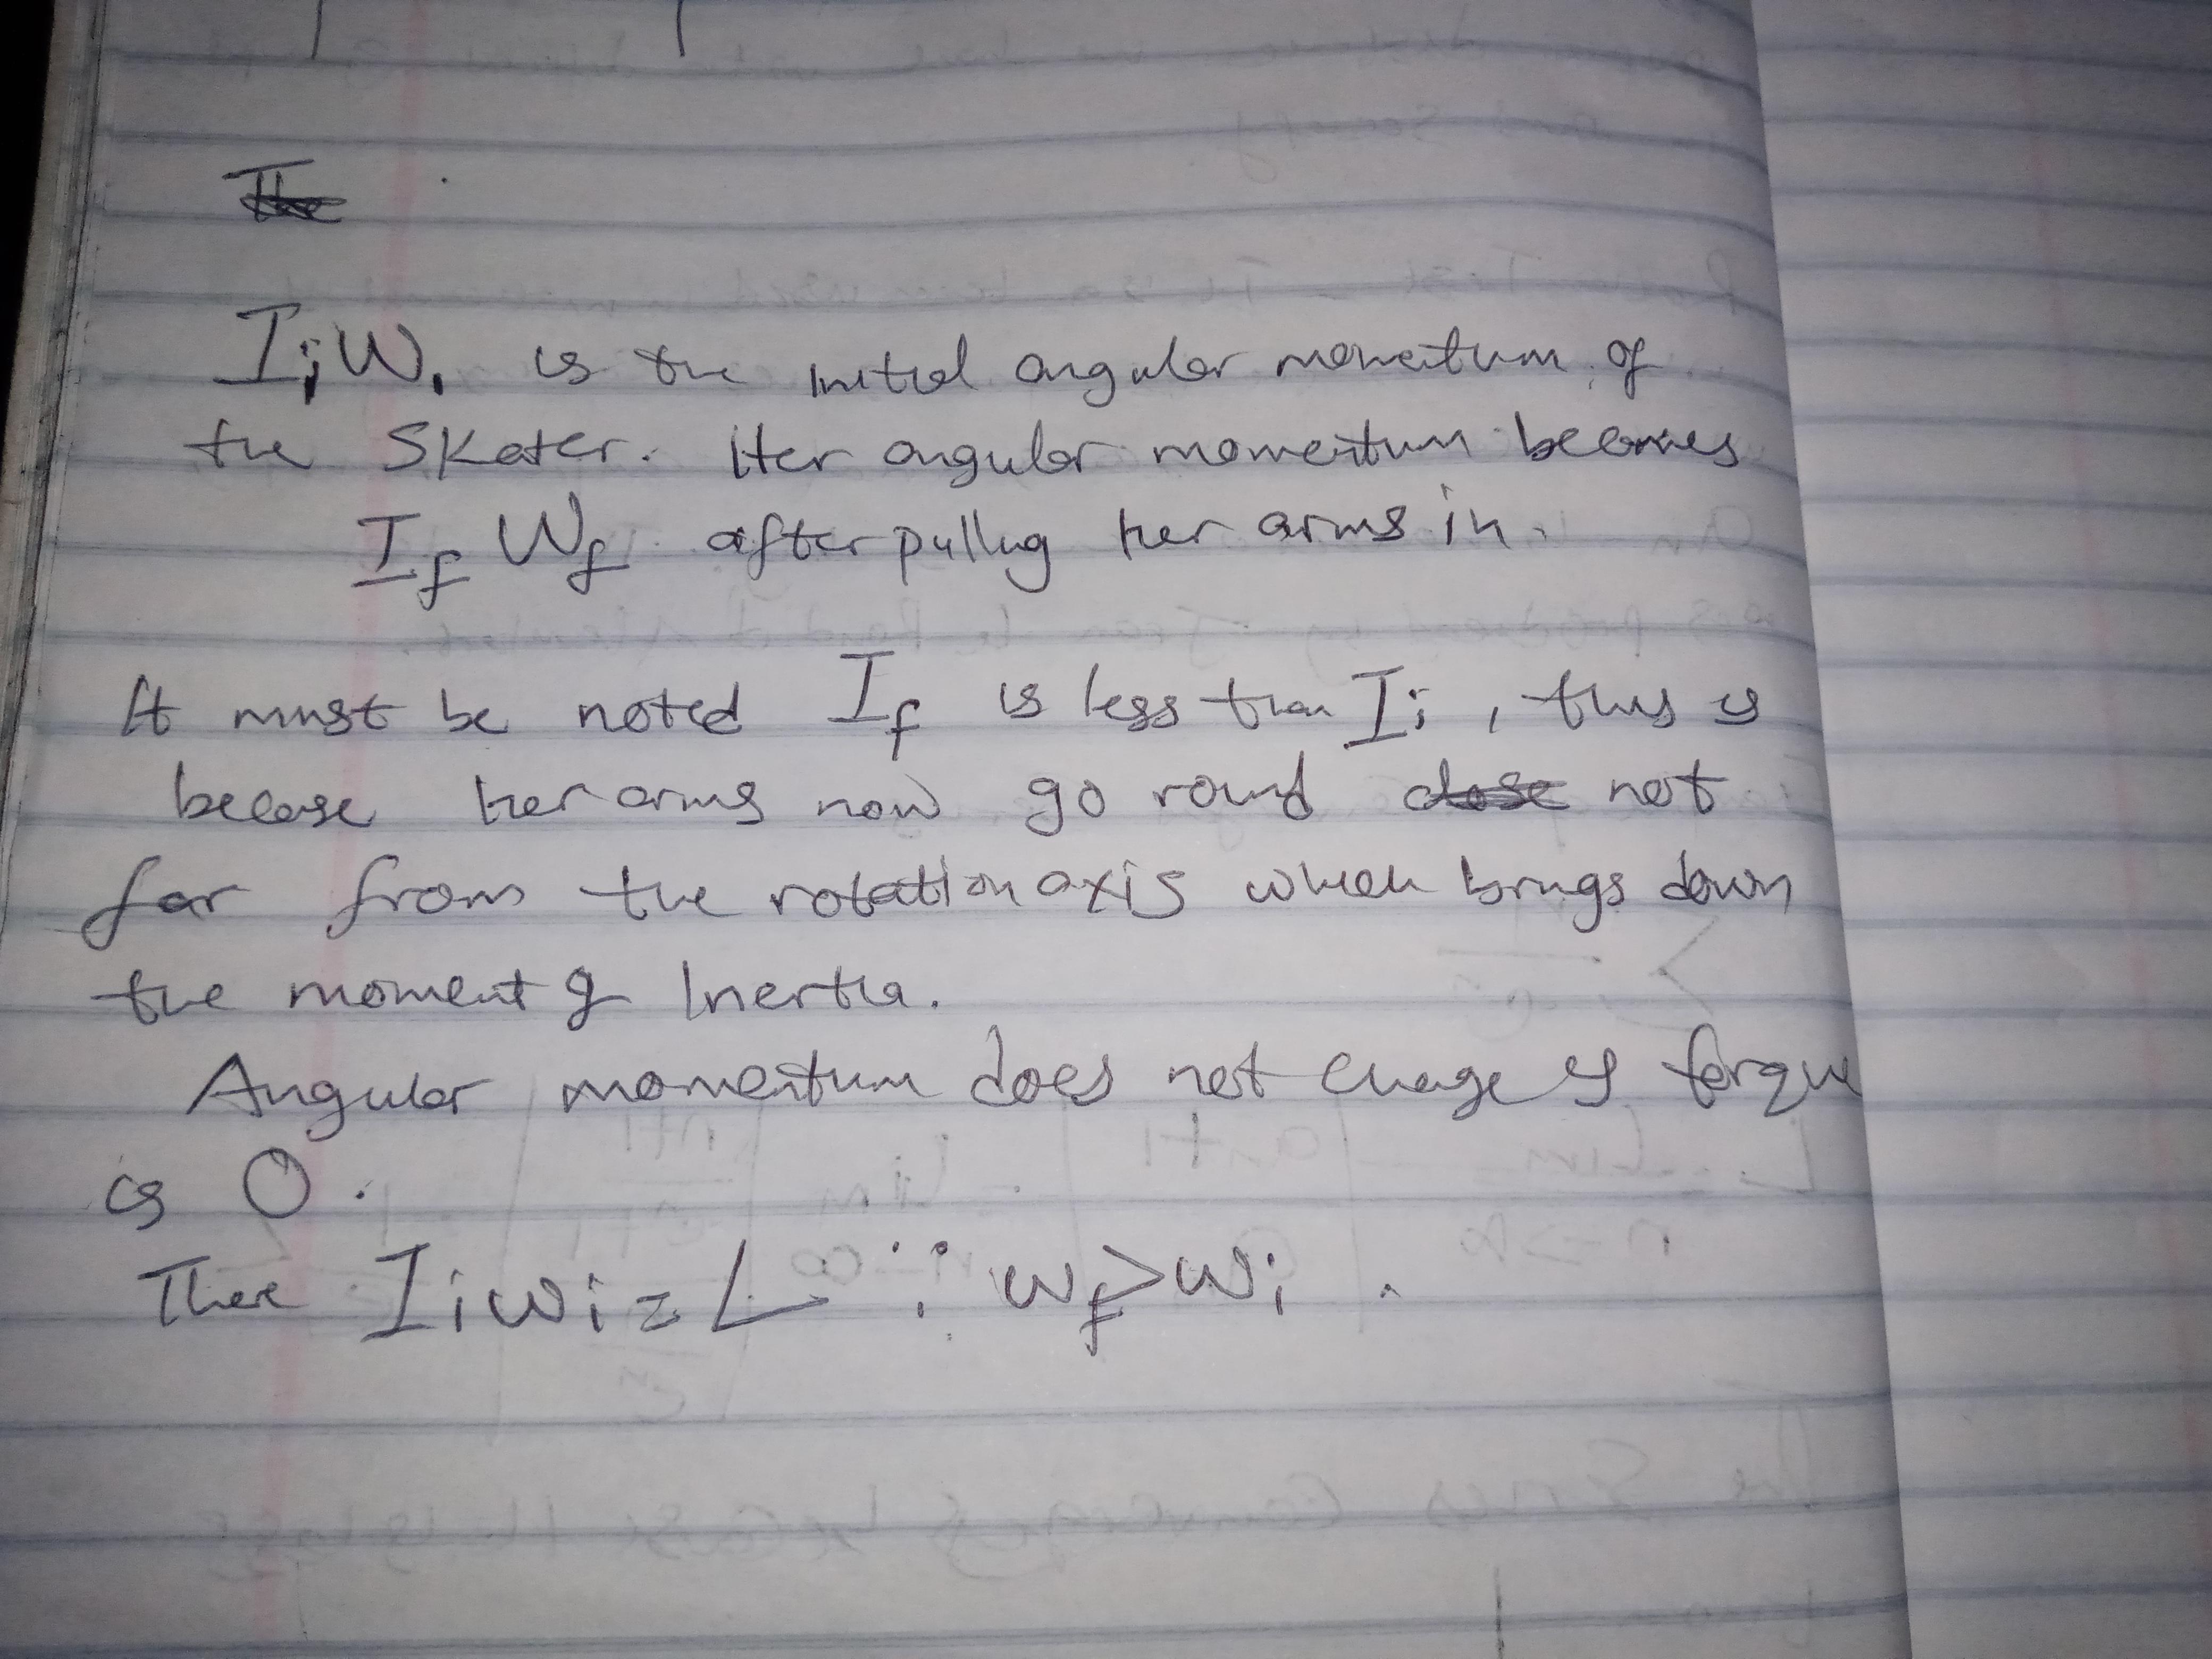 The
IiWi is the initial angular momentum of
the Skater. Her angular momentum becomes
If Wf after pulling her arms in.
It must be noted If is less than Ii, this is
because her arms now go round close not
far from the rotation axis when brings down
the moment of Inertia.
Angular momentum does not change if torque
is 0.
There Iiwi = L ∴ wf>wi.